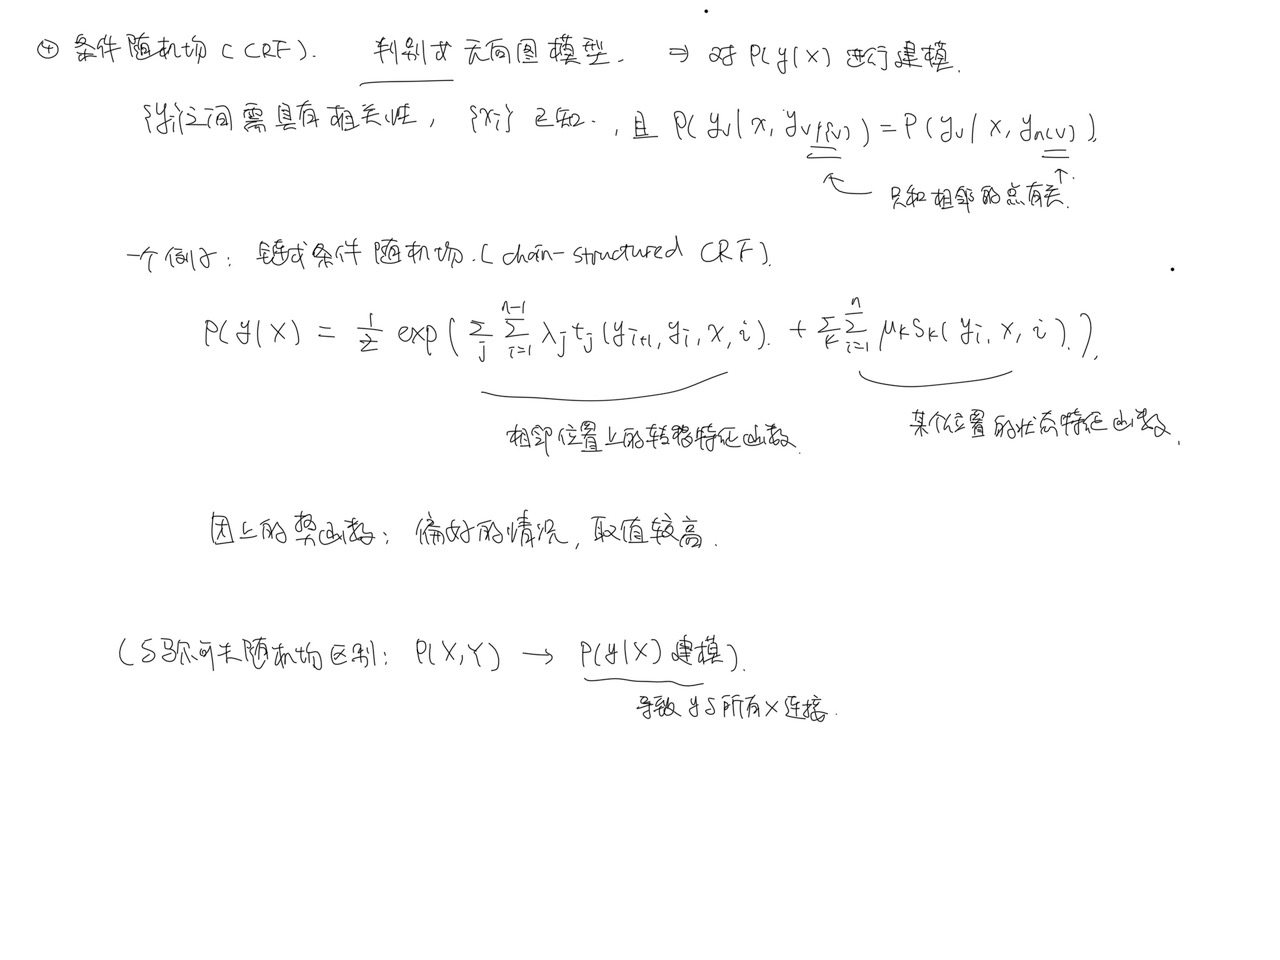 ④ 条件随机场 (CRF). 判别式 无向图模型. ⇒ 对 P(y|X) 进行建模.
{yi}之间需具有相关性, {xi} 已知. , 且 P(yv|x, yV/{v}) = P(yv|x, yn(v)).
只和相邻的点有关.
一个例子: 链式条件随机场. (chain-structured CRF).
P(y|X) = 1/Z exp( Σj Σ_{i=1}^{n-1} λj tj(yi+1, yi, x, i). + Σk Σ_{i=1}^{n} μk sk(yi, x, i). ).
相邻位置上的转移特征函数.
某个位置的状态特征函数.
团上的势函数: 偏好的情况, 取值较高.
(与马尔可夫随机场区别: P(X,Y) → P(y|X) 建模).
导致 y与所有x连接.